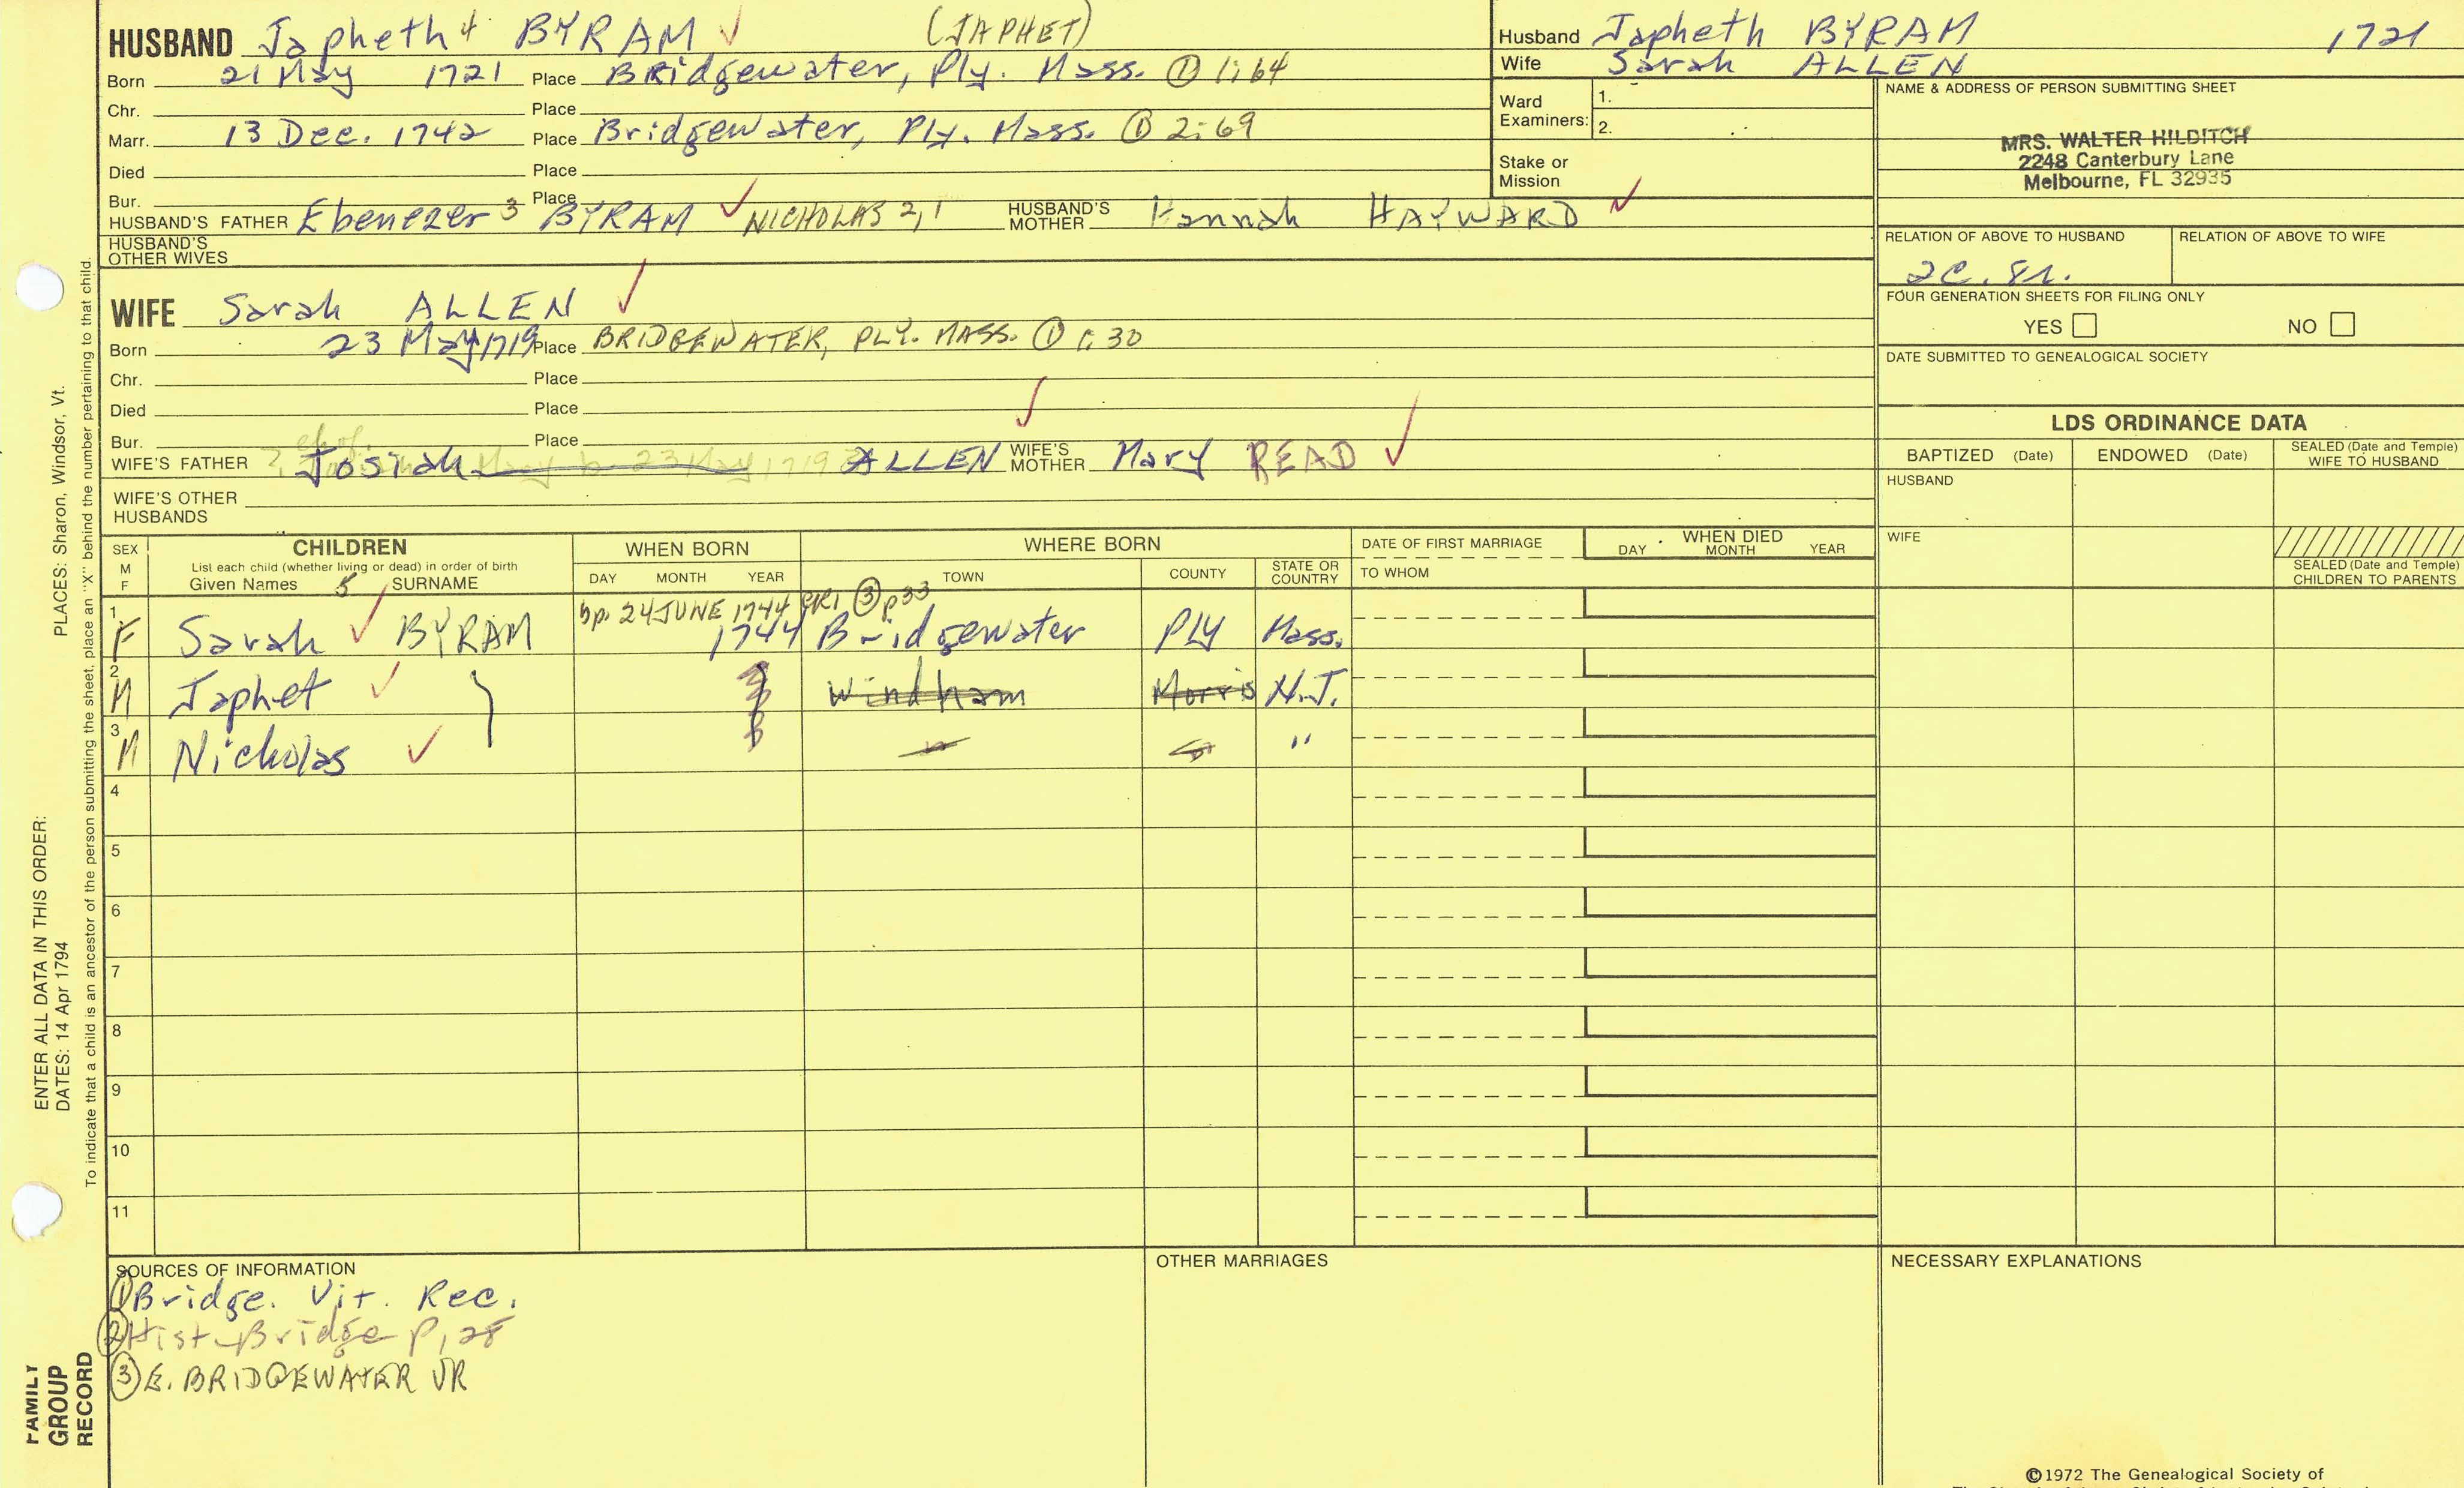 HUSBAND Japheth 4 BYRAM ✓ (JAPHET)
Born 21 May 1721 Place Bridgewater, Ply. Mass. ① 1:64
Chr. Place
Marr. 13 Dec. 1742 Place Bridgewater, Ply. Mass. ① 2:69
Died Place
Bur. Place
HUSBAND'S FATHER Ebenezer 3 BYRAM ✓ NICHOLAS 2,1 HUSBAND'S MOTHER Hannah HAYWARD ✓
HUSBAND'S OTHER WIVES
WIFE Sarah ALLEN ✓
Born 23 May 1719 Place BRIDGEWATER, PLY. MASS. ① 1:30
Chr. Place
Died Place
Bur. Place
WIFE'S FATHER Josiah Mary b 23 May 1719 ALLEN WIFE'S MOTHER Mary READ ✓
WIFE'S OTHER HUSBANDS
Husband Japheth BYRAM 1721
Wife Sarah ALLEN
Ward Examiners: 1.
2.
Stake or Mission
NAME & ADDRESS OF PERSON SUBMITTING SHEET
MRS. WALTER HILDITCH
2248 Canterbury Lane
Melbourne, FL 32935
RELATION OF ABOVE TO HUSBAND RELATION OF ABOVE TO WIFE
2C. 8r.
FOUR GENERATION SHEETS FOR FILING ONLY
YES NO
DATE SUBMITTED TO GENEALOGICAL SOCIETY
LDS ORDINANCE DATA
BAPTIZED (Date) ENDOWED (Date) SEALED (Date and Temple) WIFE TO HUSBAND
HUSBAND
WIFE
SEALED (Date and Temple) CHILDREN TO PARENTS
SEX M F
CHILDREN
List each child (whether living or dead) in order of birth
Given Names 5 SURNAME
WHEN BORN
DAY MONTH YEAR
WHERE BORN
TOWN COUNTY STATE OR COUNTRY
DATE OF FIRST MARRIAGE
TO WHOM
WHEN DIED
DAY MONTH YEAR
bp. 24 JUNE 1744 CR1 ③ p33
1 F Sarah ✓ BYRAM 1744 Bridgewater PLY Mass.
2 M Japhet ✓ Windham Morris N.J.
3 M Nicholas ✓ " " "
4
5
6
7
8
9
10
11
SOURCES OF INFORMATION
① Bridge. Vit. Rec.
② Hist Bridge P, 28
③ E. BRIDGEWATER VR
OTHER MARRIAGES
NECESSARY EXPLANATIONS
©1972 The Genealogical Society of
PLACES: Sharon, Windsor, Vt.
To indicate that a child is an ancestor of the person submitting the sheet, place an "X" behind the number pertaining to that child.
ENTER ALL DATA IN THIS ORDER:
DATES: 14 Apr 1794
FAMILY
GROUP
RECORD